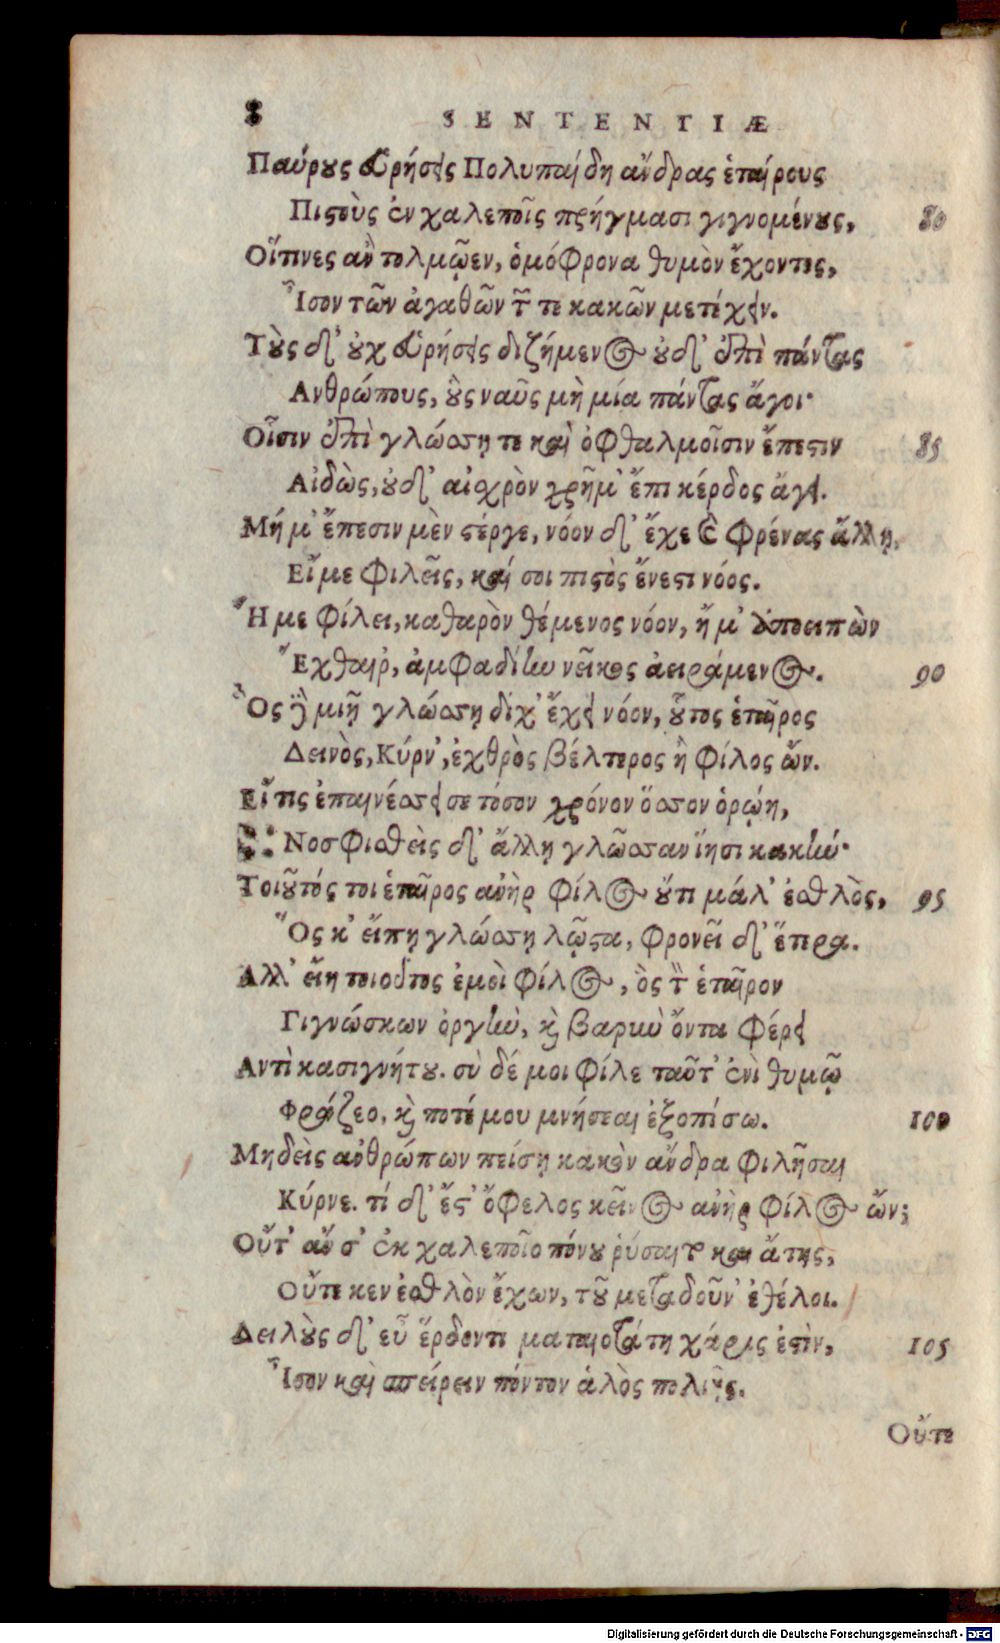 8 SENTENTIÆ
Παύρους εὑρήσεις Πολυπαίδη ἄνδρας ἑταίρους
Πιστοὺς ἐν χαλεποῖς πρήγμασι γιγνομένους, 80
Οἵτινες ἂν τολμῷεν, ὁμόφρονα θυμὸν ἔχοντες,
Ἶσον τῶν ἀγαθῶν τῶν τε κακῶν μετέχειν.
Τοὺς δ' οὐχ εὑρήσεις διζήμενος οὐδ' ἐπὶ πάντας
Ανθρώπους, οὓς ναῦς μὴ μία πάντας ἄγοι·
Οἷσιν ἐπὶ γλώσσῃ τε καὶ ὀφθαλμοῖσιν ἔπεστιν 85
Αἰδὼς, οὐδ' αἰσχρὸν χρῆμ' ἔπι κέρδος ἄγει.
Μή μ' ἔπεσιν μὲν στέργε, νόον δ' ἔχε καὶ φρένας ἄλλῃ,
Εἴ με φιλεῖς, καί σοι πιστὸς ἔνεστι νόος.
Ἤ με φίλει, καθαρὸν θέμενος νόον, ἤ μ' ἀποειπὼν
Ἔχθαιρ', ἀμφαδίην νεῖκος ἀειράμενος. 90
Ὃς δὲ μιῇ γλώσσῃ δίχ' ἔχει νόον, οὗτος ἑταῖρος
Δεινὸς, Κύρν', ἐχθρὸς βέλτερος ἢ φίλος ὤν.
Εἴ τις ἐπαινέσσει σε τόσον χρόνον ὅσσον ὁρῴη,
Νοσφισθεὶς δ' ἄλλῃ γλῶσσαν ἵησι κακήν·
Τοιοῦτός τοι ἑταῖρος ἀνὴρ φίλος οὔτι μάλ' ἐσθλὸς, 95
Ὅς κ' εἴπῃ γλώσσῃ λῷστα, φρονεῖ δ' ἕτερα.
Αλλ' εἴη τοιοῦτος ἐμοὶ φίλος, ὃς τὸν ἑταῖρον
Γιγνώσκων ὀργὴν, καὶ βαρὺν ὄντα φέρει
Αντὶ κασιγνήτου. σὺ δέ μοι φίλε ταῦτ' ἐνὶ θυμῷ
Φράζεο, καὶ ποτέ μου μνήσεαι ἐξοπίσω. 100
Μηδεὶς ἀνθρώπων πείσῃ κακὸν ἄνδρα φιλῆσαι
Κύρνε. τί δ' ἔστ' ὄφελος κεῖνος ἀνὴρ φίλος ὤν;
Οὔτ' ἄν σ' ἐκ χαλεποῖο πόνου ῥύσαιτο καὶ ἄτης,
Οὔτε κεν ἐσθλὸν ἔχων, τοῦ μεταδοῦν' ἐθέλοι.
Δειλοὺς δ' εὖ ἕρδοντι ματαιοτάτη χάρις ἐστὶν, 105
Ἶσον καὶ σπείρειν πόντον ἁλὸς πολιῆς.
Οὔτε
Digitalisierung gefördert durch die Deutsche Forschungsgemeinschaft - DFG